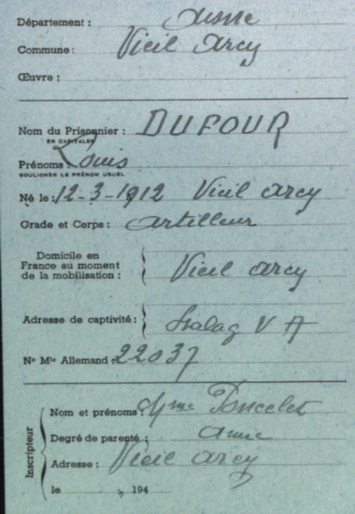 Département : Aisne
Commune : Vieil Arcy
Œuvre :
Nom du Prisonnier : DUFOUR
EN CAPITALES
Prénoms : Louis
SOULIGNER LE PRÉNOM USUEL
Né le : 12-3-1912 Vieil Arcy
Grade et Corps : Artilleur
Domicile en
France au moment
de la mobilisation : Vieil Arcy
Adresse de captivité : Stalag V A
N° Mle Allemand 22037
Inscripteur
Nom et prénoms : Mme Poncelet
Degré de parenté : Amie
Adresse : Vieil Arcy
le 194